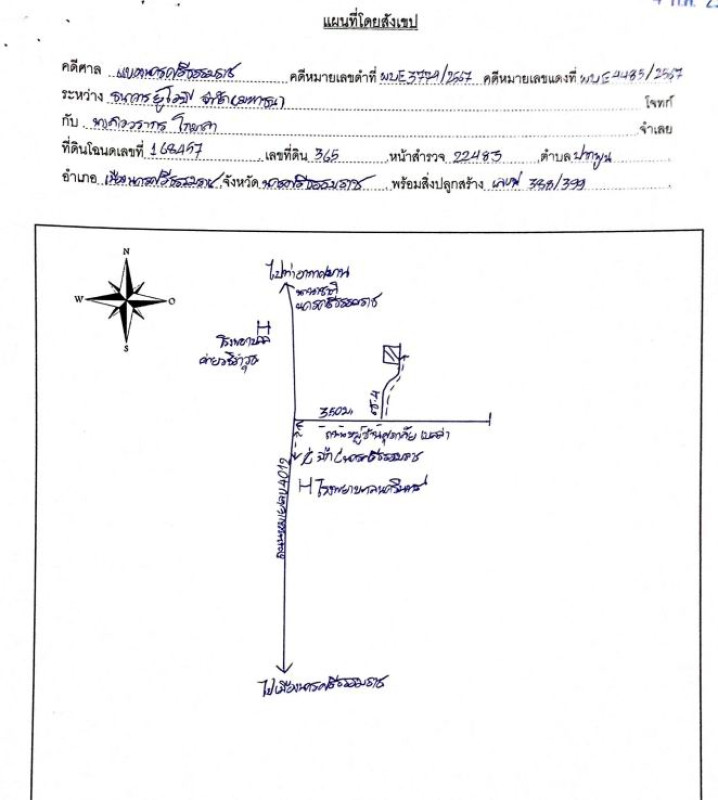 แผนที่โดยสังเขป
คดีศาล แขวงนครศรีธรรมราช คดีหมายเลขดำที่ ผบE3774/2567 คดีหมายเลขแดงที่ ผบE4485/2567
ระหว่าง ธนาคารยูโอบี จำกัด (มหาชน) โจทก์
กับ จำเลย
ที่ดินโฉนดเลขที่ 168457 เลขที่ดิน 365 หน้าสำรวจ 22483 ตำบล ปากพูน
อำเภอ เมืองนครศรีธรรมราช จังหวัด นครศรีธรรมราช พร้อมสิ่งปลูกสร้าง เลขที่ 338/399
N
W
O
S
ไปท่าอากาศยาน
นานาชาติ
นครศรีธรรมราช
H
โรงพยาบาล
ค่ายวชิราวุธ
350ม
ซ.4
นครศรีธรรมราช
H โรงพยาบาลนครินทร์
ถนนหมายเลข 4012
ไปเมืองนครศรีธรรมราช